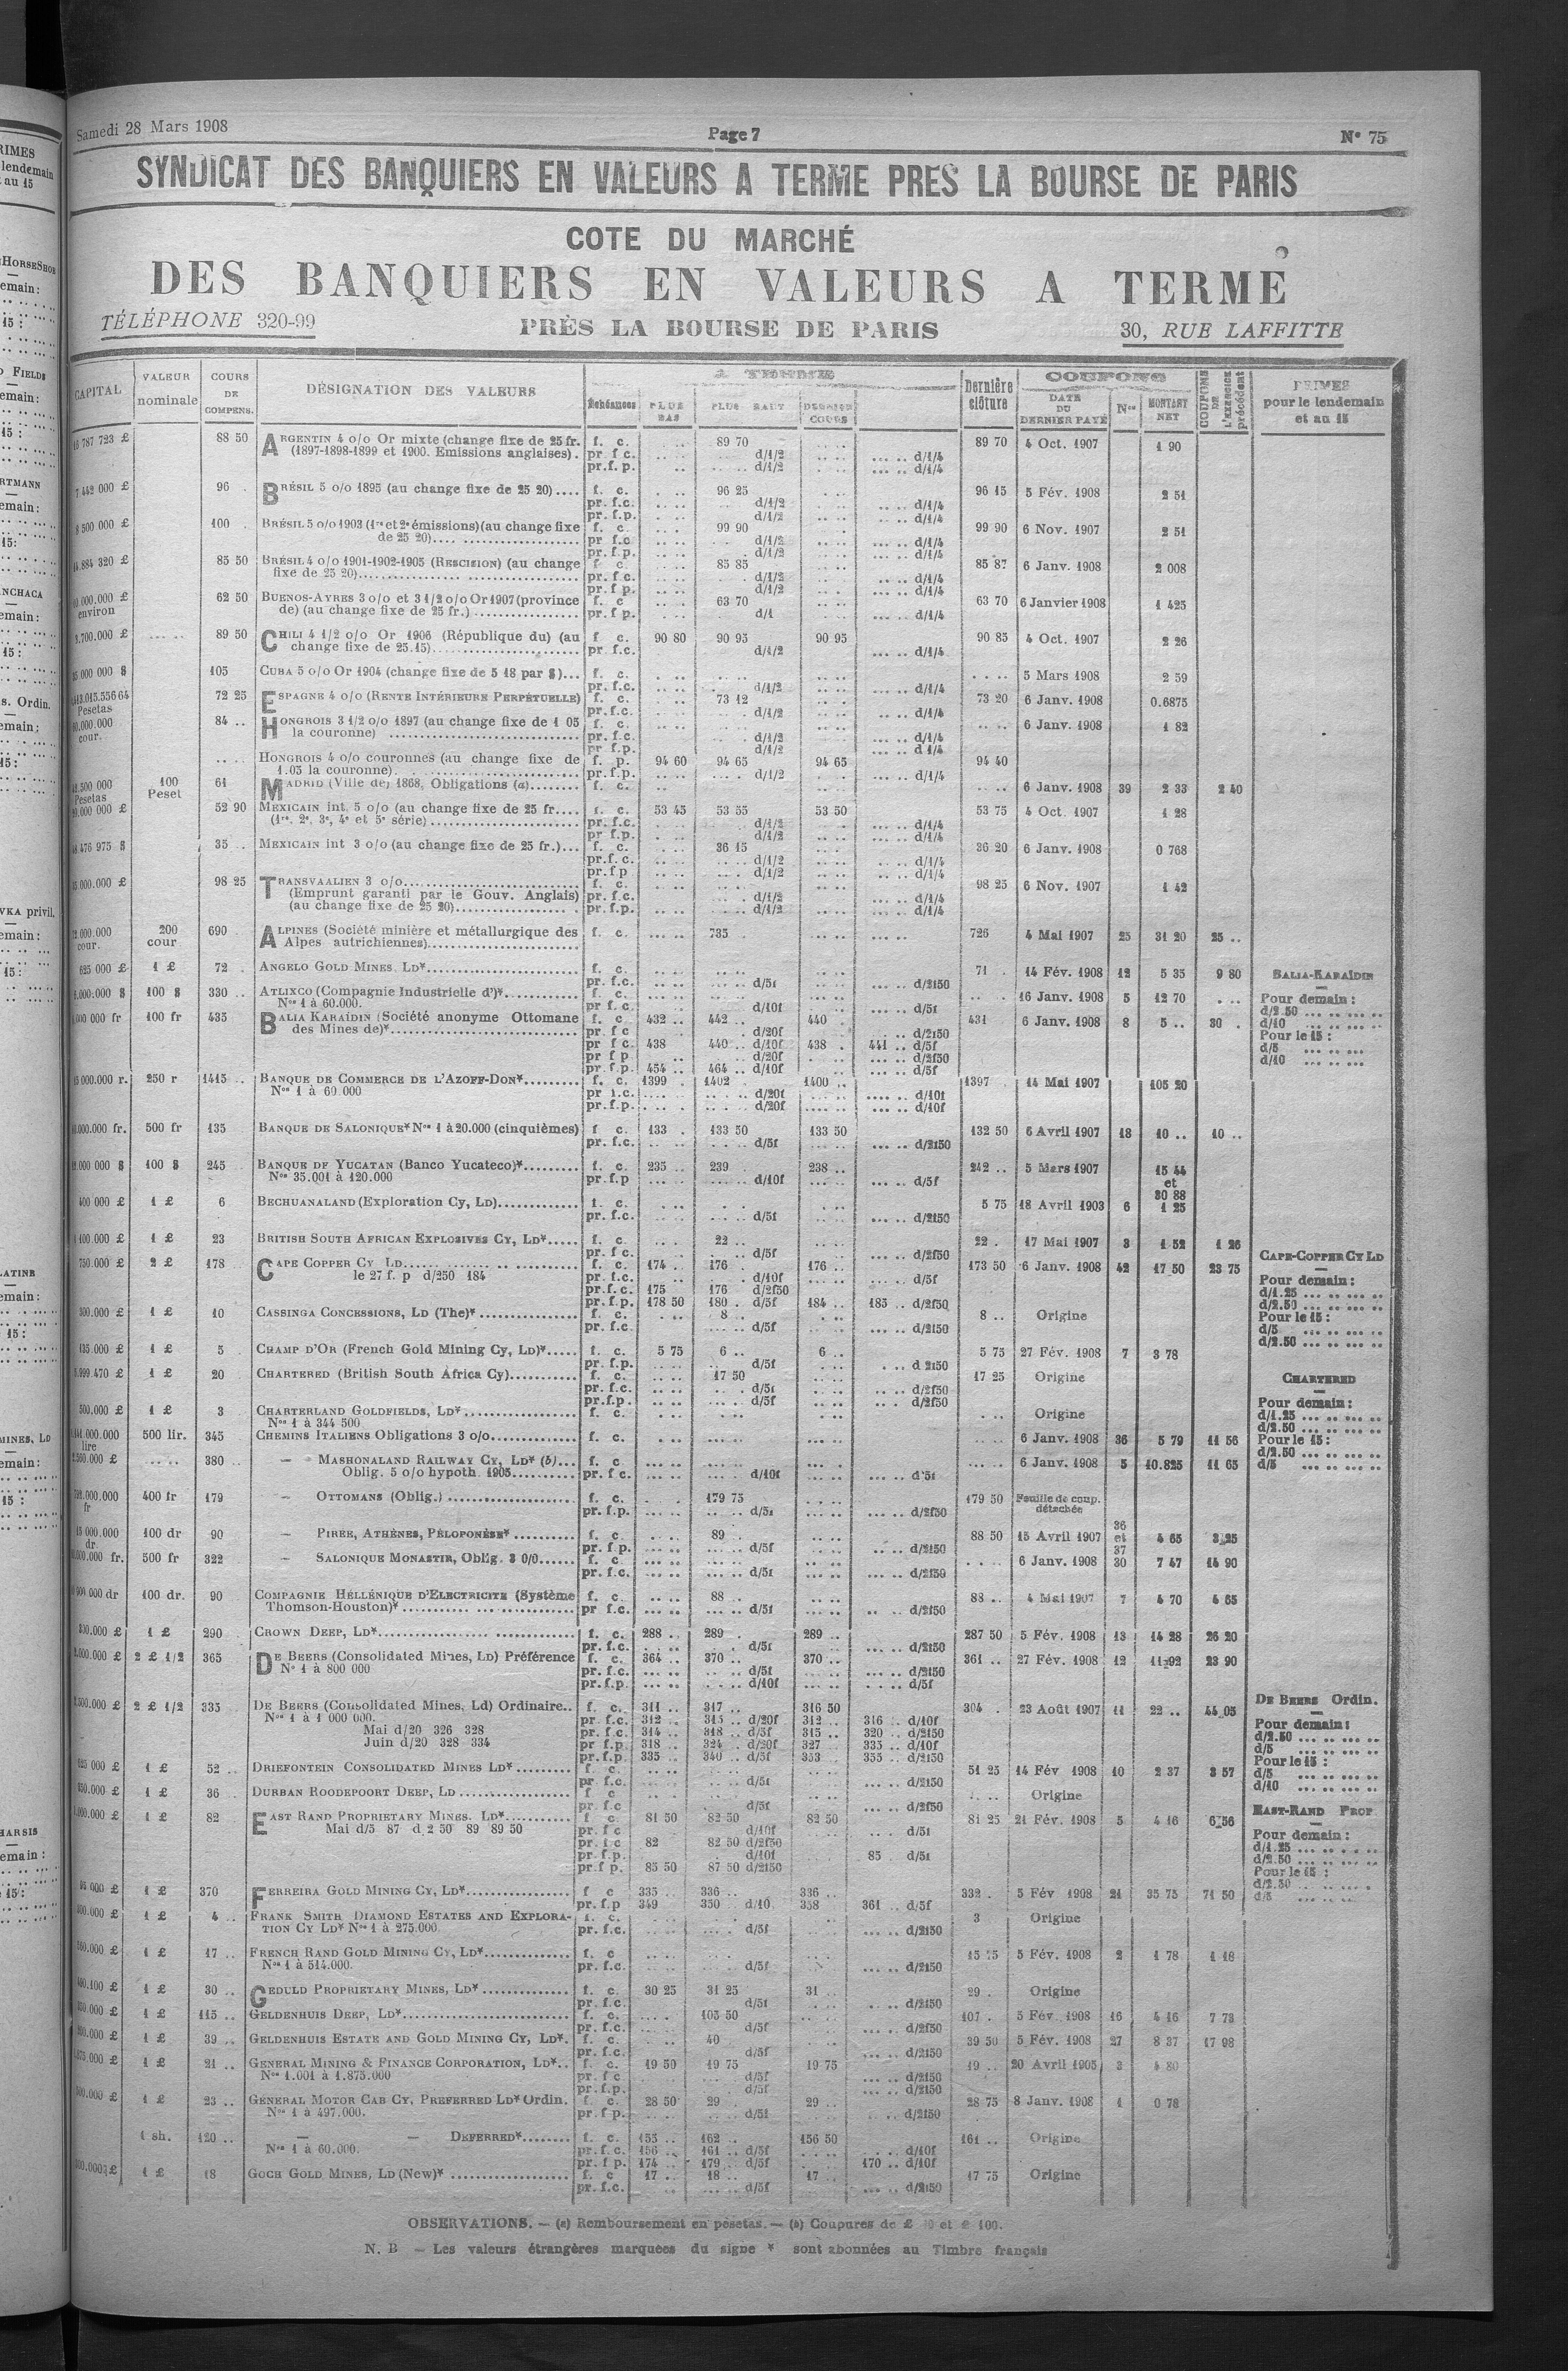 Samedi 28 Mars 1908
Page 7
N° 75
SYNDICAT DES BANQUIERS EN VALEURS A TERME PRES LA BOURSE DE PARIS
COTE DU MARCHÉ
DES BANQUIERS EN VALEURS A TERME
TÉLÉPHONE 320-99
PRÈS LA BOURSE DE PARIS
30, RUE LAFFITTE
CAPITAL VALEUR nominale COURS DE COMPENS. DÉSIGNATION DES VALEURS A TERME Échéances PLUS BAS PLUS HAUT DERNIER COURS Dernière clôture COUPONS DATE DU DERNIER PAYÉ Nos MONTANT NET COUPONS DE L'EXERCICE précédent PRIMES pour le lendemain et au 15
88 50 ARGENTIN 4 o/o Or mixte (change fixe de 25 fr. f. c. 89 70 89 70 4 Oct. 1907 1 90
(1897-1898-1899 et 1900. Emissions anglaises). pr f c. d/1/2 d/1/4
pr.f.p. d/1/2 d/1/4
7 442 000 £ 96 . BRÉSIL 5 o/o 1895 (au change fixe de 25 20).... f. c. 96 25 96 15 5 Fév. 1908 2 51
pr. f.c. d/1/2 d/1/4
pr. f.p. d/1/2 d/1/4
8 500 000 £ 100 . BRÉSIL 5 o/o 1903 (1re et 2e émissions) (au change fixe f. c. 99 90 99 90 6 Nov. 1907 2 51
de 25 20).... pr f.c d/1/2 d/1/4
pr. f.p. d/1/2 d/1/4
85 50 BRÉSIL 4 o/o 1901-1902-1905 (RESCISION) (au change f c. 85 85 85 87 6 Janv. 1908 2 008
fixe de 25 20).... pr. f c. d/1/2 d/1/4
pr. f p. d/1/2 d/1/4
environ 62 50 BUENOS-AYRES 3 o/o et 3 1/2 o/o Or 1907 (province f. c 63 70 63 70 6 Janvier 1908 1 425
de) (au change fixe de 25 fr.) .... pr. f p. d/1 d/1/4
89 50 CHILI 4 1/2 o/o Or 1906 (République du) (au f c. 90 80 90 95 90 95 90 85 4 Oct. 1907 2 26
change fixe de 25.15).... pr f.c. d/1/2 d/1/4
105 CUBA 5 o/o Or 1904 (change fixe de 5 18 par $)... f. c. 5 Mars 1908 2 59
pr. f.c. d/1/2 d/1/4
Pesetas 72 25 ESPAGNE 4 o/o (RENTE INTÉRIEURE PERPÉTUELLE) f. c. 73 12 73 20 6 Janv. 1908 0.6875
pr. f.c. d/1/2 d/1/4
cour. 84 .. HONGROIS 3 1/2 o/o 1897 (au change fixe de 1 05 f. c. 6 Janv. 1908 1 82
la couronne) .... pr. f.c. d/1/2 d/1/4
pr f.p. d/1/2 d 1/4
HONGROIS 4 o/o couronnes (au change fixe de f. p. 94 60 94 65 94 65 94 40
1.05 la couronne).... pr. f.p. d/1/2 d/1/4
Pesetas 100 Peset 61 MADRID (Ville de) 1868, Obligations (a)........ f. c. 6 Janv. 1908 39 2 33 2 40
52 90 MEXICAIN int. 5 o/o (au change fixe de 25 fr.... f. c. 53 45 53 55 53 50 53 75 4 Oct. 1907 1 28
(1re, 2e, 3e, 4e et 5e série) .... pr. f.c. d/1/2 d/1/4
pr f.p. d/1/2 d/1/4
35 .. MEXICAIN int 3 o/o (au change fixe de 25 fr.)... f. c. 36 15 36 20 6 Janv. 1908 0 768
pr. f. c. d/1/2 d/1/4
pr. f.p d/1/2 d/1/4
98 25 TRANSVAALIEN 3 o/o.... f. c. 98 25 6 Nov. 1907 1 42
(Emprunt garanti par le Gouv. Anglais) pr. f.c. d/1/2 d/1/4
(au change fixe de 25 20).... pr. f.p. d/1/2 d/1/4
cour. 200 cour 690 ALPINES (Société minière et métallurgique des f. c. 735 726 4 Mai 1907 25 31 20 25 ..
Alpes autrichiennes)....
625 000 £ 1 £ 72 . ANGELO GOLD MINES. LD*.... f. c. 71 . 14 Fév. 1908 12 5 35 9 80
pr. f.c. d/5f d/2f50
100 $ 330 .. ATLIXCO (Compagnie Industrielle d')*.... f. c. 16 Janv. 1908 5 12 70
Nos 1 à 60.000. pr f. c. d/10f d/5f
100 fr 435 BALIA KARAÏDIN (Société anonyme Ottomane f. c. 432 .. 442 .. 440 431 6 Janv. 1908 8 5 .. 30 .
des Mines de)*.... pr f c d/20f d/2f50
pr f c. 438 440 .. d/10f 438 . 441 .. d/5f
pr f p d/20f d/2f50
pr. f.p. 454 .. 464 .. d/10f d/5f
BALIA-KARAÏDIN
Pour demain :
d/2.50
d/10
Pour le 15 :
d/5
d/10
250 r 1415 .. BANQUE DE COMMERCE DE L'AZOFF-DON*.... f. c. 1399 . 1402 1400 .. 1397 . 14 Mai 1907 105 20
Nos 1 à 60.000 pr f.c. d/20f d/10f
pr. f.p. d/20f d/10f
500 fr 135 BANQUE DE SALONIQUE* Nos 1 à 20.000 (cinquièmes) f c. 133 . 133 50 133 50 132 50 6 Avril 1907 18 10 .. 10 ..
pr. f.c. d/5f d/2f50
100 $ 245 BANQUE DE YUCATAN (Banco Yucateco)*.... f. c. 235 .. 239 . 238 .. 242 .. 5 Mars 1907 15 44
Nos 35.001 à 120.000 pr. f.p d/10f d/5f et 30 88
400 000 £ 1 £ 6 BECHUANALAND (Exploration Cy, LD).... f. c. 5 75 18 Avril 1903 6 1 25
pr. f.c. d/5f d/2f50
1 £ 23 BRITISH SOUTH AFRICAN EXPLOSIVES CY, LD*.... f. c. 22 .. 22 . 17 Mai 1907 3 1 52 1 26
pr. f c. d/5f d/2f50
750.000 £ 2 £ 178 CAPE COPPER CY LD.... f. c. 174 .. 176 176 .. 173 50 6 Janv. 1908 42 17 50 23 75
le 27 f. p d/250 184 pr. f.c. d/10f d/5f
pr. f.c. 175 176 d/2f50
pr. f.p. 178 50 180 . d/5f 184 .. 185 .. d/2f50
CAPE-COPPER CY LD
Pour demain :
d/1.25
d/2.50
Pour le 15 :
d/5
d/2.50
300.000 £ 1 £ 10 CASSINGA CONCESSIONS, LD (The)*.... f. c. 8 .. 8 .. Origine
pr. f.c. d/5f d/2f50
135.000 £ 1 £ 5 CHAMP D'OR (French Gold Mining Cy, LD)*.... f. c. 5 75 6 .. 6 .. 5 75 27 Fév. 1908 7 3 78
pr. f.p. d/5f d 2f50
1 £ 20 CHARTERED (British South Africa Cy).... f. c. 17 50 17 25 Origine
pr. f.c. d/5f d/2f50
pr.f.p. d/5f d/2f50
CHARTERED
Pour demain :
d/1.25
d/2.50
Pour le 15 :
d/2.50
d/5
500.000 £ 1 £ 3 CHARTERLAND GOLDFIELDS, LD*.... f. c. Origine
Nos 1 à 344 500
lire 500 lir. 345 CHEMINS ITALIENS Obligations 3 o/o.... f. c. 6 Janv. 1908 36 5 79 11 56
380 .. — MASHONALAND RAILWAY CY, LD* (b)... f. c 6 Janv. 1908 5 10.825 11 65
Oblig. 5 o/o hypoth. 1905.... pr. f c. d/10f d 5f
fr 400 fr 179 — OTTOMANS (Oblig.) .... f. c. 179 75 179 50 Feuille de coup. détachée
pr. f.p. d/5f d/2f50
dr 100 dr 90 — PIRÉE, ATHÈNES, PÉLOPONÈSE*.... f. c 89 . 88 50 15 Avril 1907 36 et 37 4 65 3.25
pr. f p. d/5f d/2f50
500 fr 322 — SALONIQUE MONASTIR, Oblig. 3 0/0.... f. c 6 Janv. 1908 30 7 47 14 90
pr. f.c. d/5f d/2f50
100 dr. 90 COMPAGNIE HÉLLÉNIQUE D'ELECTRICITE (Système f. c. 88 .. 88 .. 4 Mai 1907 7 4 70 4 65
Thomson-Houston)*.... pr f.c. d/5f d/2f50
1 £ 290 CROWN DEEP, LD*.... f. c. 288 .. 289 . 289 .. 287 50 5 Fév. 1908 13 14 28 26 20
pr. f.c. d/5f d/2f50
2 £ 1/2 365 DE BEERS (Consolidated Mines, LD) Préférence f. c. 364 .. 370 .. 370 .. 361 .. 27 Fév. 1908 12 11.92 23 90
N° 1 à 800 000 pr. f.c. d/5f d/2f50
pr. f.p. d/10f d/5f
2 £ 1/2 335 DE BEERS (Consolidated Mines, Ld) Ordinaire.. f. c. 311 .. 317 .. 316 50 304 . 23 Août 1907 11 22 .. 44 05
Nos 1 à 1 000 000. pr. f.c. 312 .. 315 .. d/20f 312 .. 316 . d/10f
Mai d/20 326 328 pr. f.c. 314 .. 318 .. d/5f 315 .. 320 .. d/2f50
Juin d/20 328 334 pr f.p. 318 .. 324 . d/20f 327 335 .. d/10f
pr. f.p. 335 .. 340 .. d/5f 353 .. 355 .. d/2f50
DE BEERS Ordin.
Pour demain :
d/2.50
d/5
Pour le 15 :
d/5
d/10
1 £ 52 .. DRIEFONTEIN CONSOLIDATED MINES LD*.... f. c. 51 25 14 Fév 1908 10 2 37 3 57
pr. f.c. d/5f d/2f50
1 £ 36 . DURBAN ROODEPOORT DEEP, LD.... f c Origine
pr. f.c d/5f d/2f50
1 £ 82 EAST RAND PROPRIETARY MINES. LD*.... f c. 81 50 82 50 82 50 81 25 21 Fév. 1908 5 4 16 6.56
Mai d/5 87 d 2 50 89 89 50 pr. f c d/10f d/5f
pr. f c 82 82 50 d/2f50
pr. f.p. d/10f 85 . d/5f
pr.f p. 85 50 87 50 d/2f50
EAST-RAND PROP
Pour demain :
d/1.25
d/2.50
Pour le 15 :
d/2.50
d/5
1 £ 370 FERREIRA GOLD MINING CY, LD*.... f c 335 .. 336 .. 336 .. 332 . 5 Fév 1908 21 35 75 71 50
pr. f.p 349 350 d/10 358 361 .. d/5f
1 £ 4 .. FRANK SMITH DIAMOND ESTATES AND EXPLORA- f. c. 3 Origine
TION CY LD* Nos 1 à 275.000. pr. f.c. d/5f d/2f50
1 £ 17 .. FRENCH RAND GOLD MINING CY, LD*.... f. c 5 Fév. 1908 2 1 78 1 18
Nos 1 à 514.000. pr. f.c. d/5f d/2f50
1 £ 30 .. GEDULD PROPRIETARY MINES, LD*.... f. c. 30 25 31 25 31 .. 29 . Origine
pr. f.c. d/5f d/2f50
1 £ 115 .. GELDENHUIS DEEP, LD*.... f. c. 105 50 107 . 5 Fév. 1908 16 4 16 7 73
pr. f.c. d/5f d/2f50
1 £ 39 .. GELDENHUIS ESTATE AND GOLD MINING CY, LD*. f. c. 40 39 50 5 Fév. 1908 27 8 37 17 98
pr. f.c. d/5f d/2f50
1 £ 21 .. GENERAL MINING & FINANCE CORPORATION, LD*.. f c. 19 50 19 75 19 75 19 .. 20 Avril 1905 3 4 80
Nos 1.001 à 1.875.000 pr. f c d/5f d/2f50
pr. f.p. d/5f d/2f50
1 £ 23 .. GÉNERAL MOTOR CAB CY, PREFERRED LD* Ordin. f. c. 28 50 29 .. 29 .. 28 75 8 Janv. 1908 1 0 78
Nos 1 à 497.000. pr. f p. d/5f d/2f50
1 sh. 120 .. — — DEFERRED*.... f. c. 155 .. 162 .. 156 50 161 .. Origine
Nos 1 à 60.000. pr. f. c. 156 .. 161 .. d/5f d/10f
pr. f p. 174 .. 179 .. d/5f 170 .. d/10f
1 £ 18 GOCH GOLD MINES, LD (New)*.... f. c 17 .. 18 .. 17 .. 17 75 Origine
pr. f.c. d/5f d/2f50
OBSERVATIONS. — (a) Remboursement en pesetas. — (b) Coupures de £ et £ 100.
N. B — Les valeurs étrangères marquées du signe * sont abonnées au Timbre français